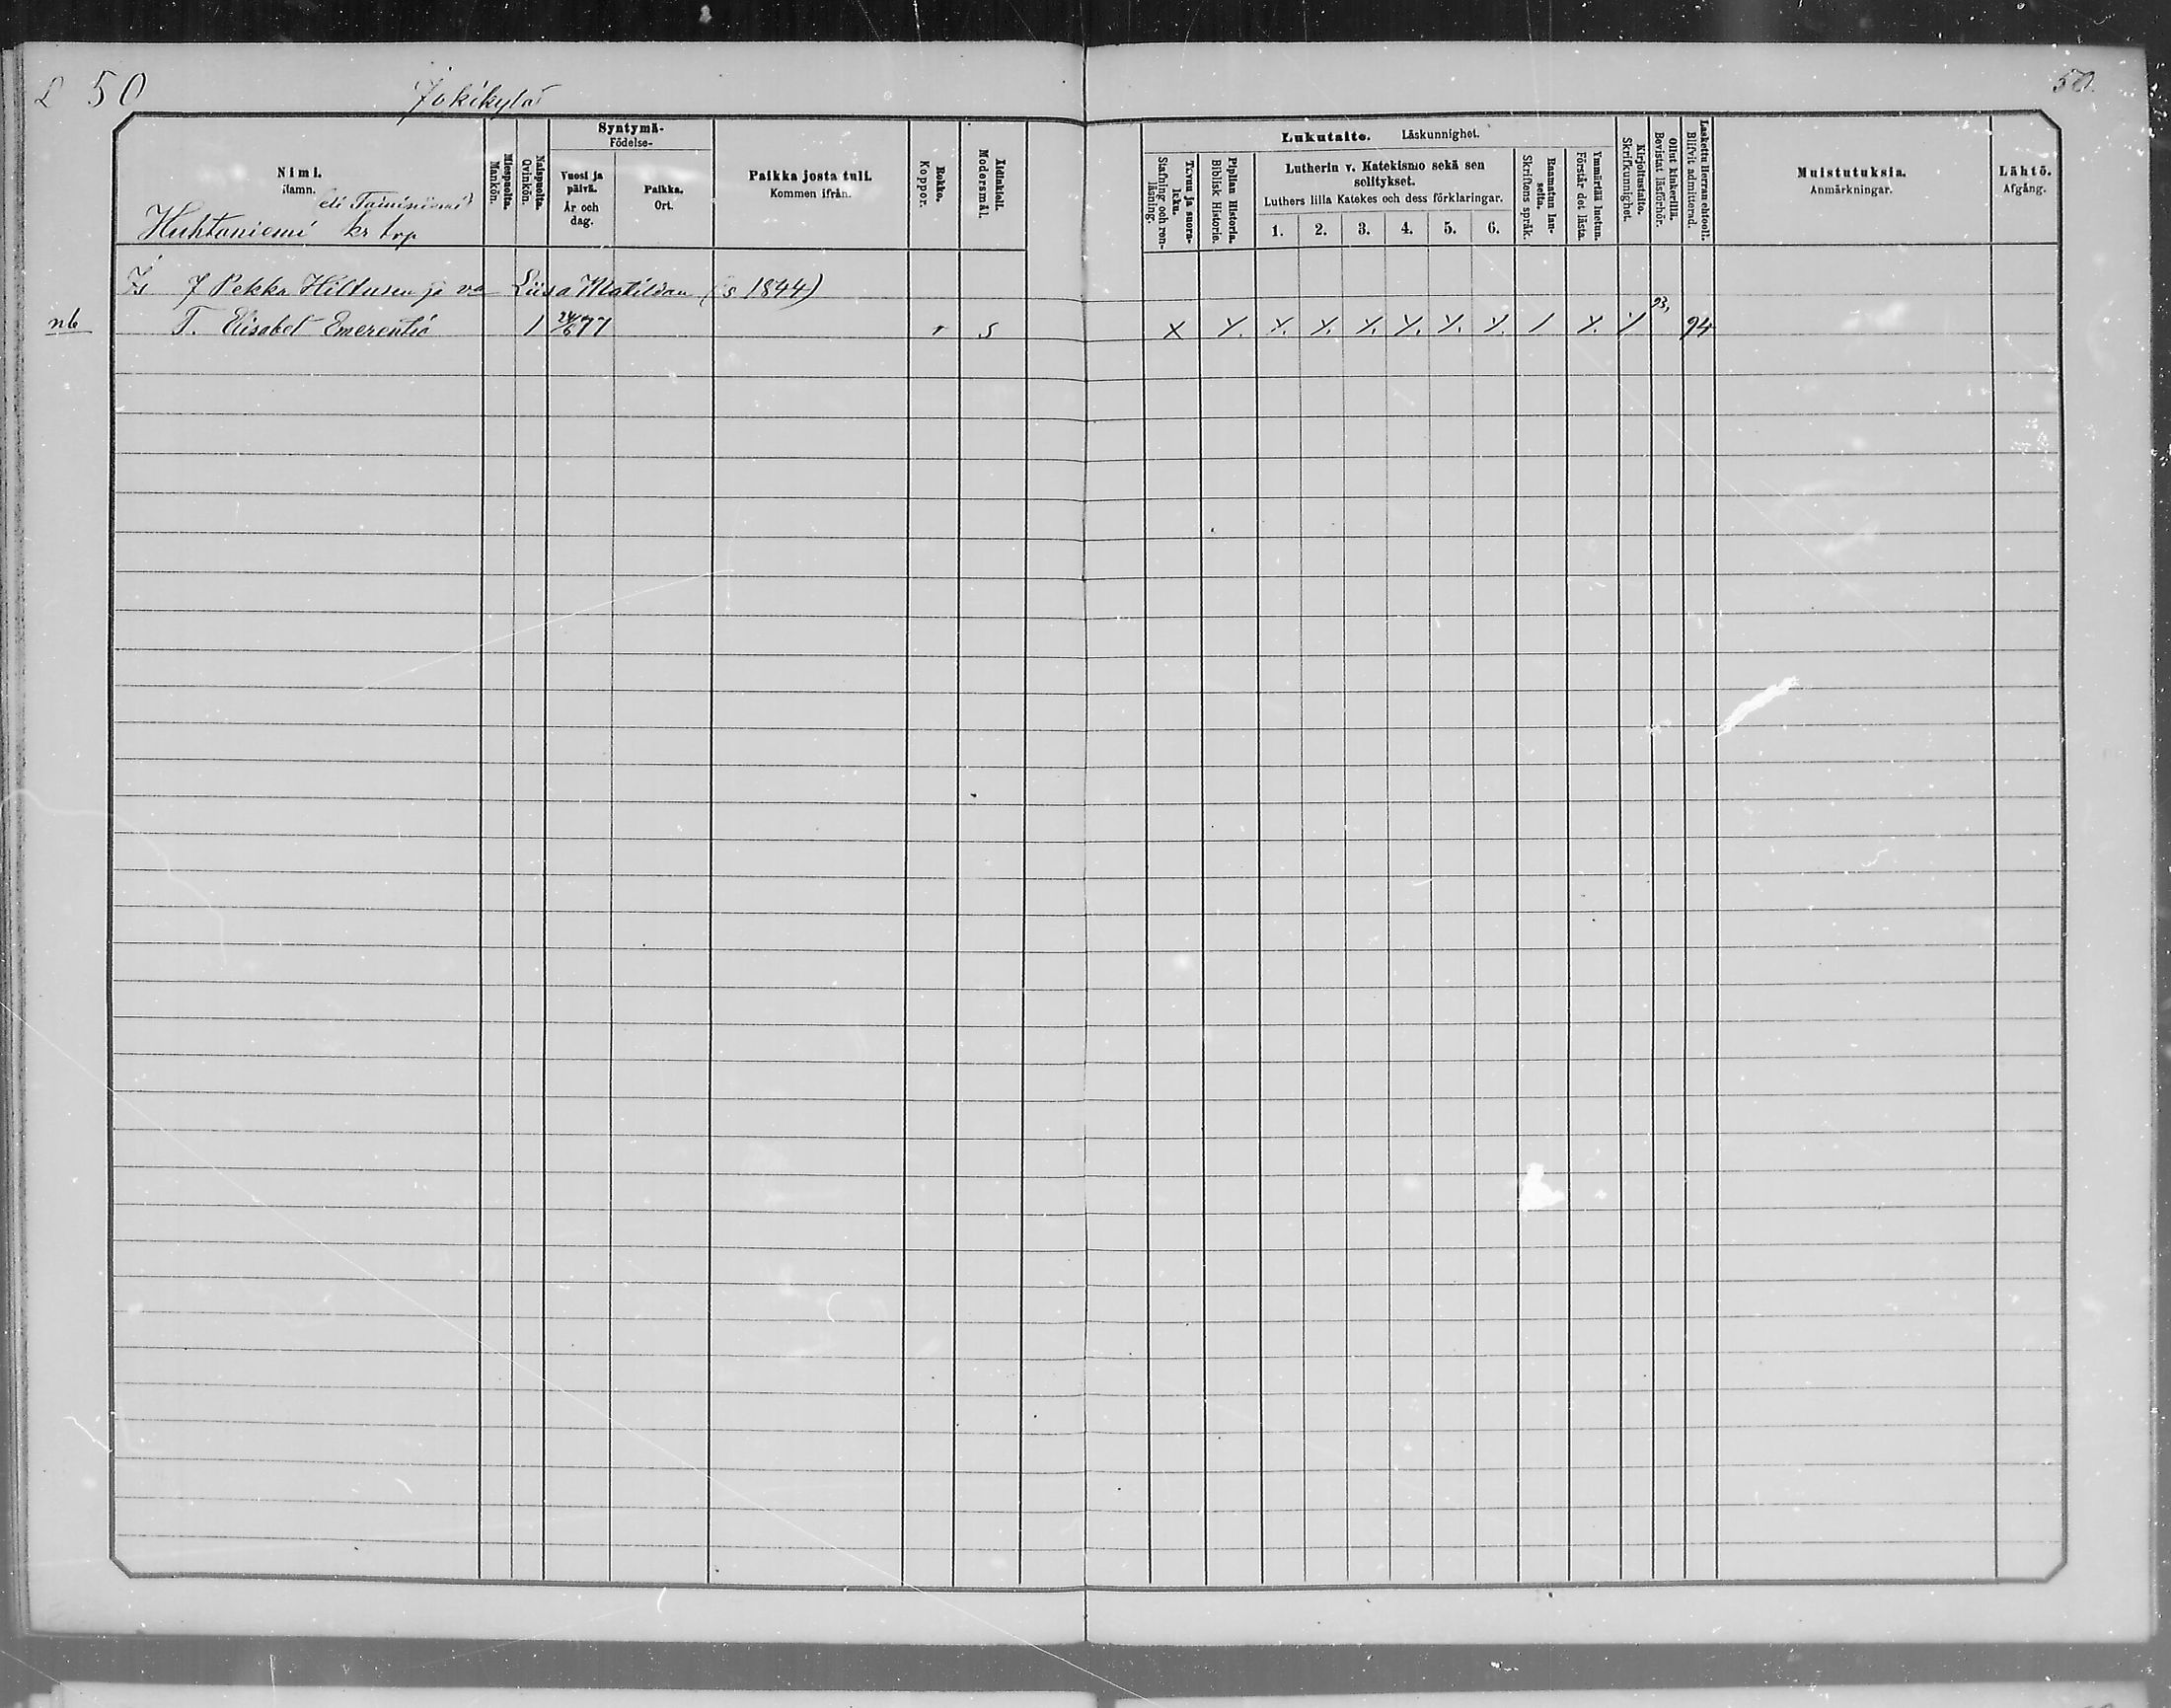 50 Jokikylä 50.
Nimi. Namn.
eli Taininiemi
Huhtoniemi kr trp
Miespuolta. Mankön.
Naispuolta. Qvinkön.
Syntymä- Födelse-
Vuosi ja päivä. År och dag.
Paikka. Ort.
Paikka josta tuli. Kommen ifrån.
Rokko. Koppor.
Äidinkieli. Modersmål.
Lukutaito. Läskunnighet.
Tavuu ja suora- luku. Stafning och ren- läsning.
Piplian Historia. Biblisk Historie.
Lutherin v. Katekismo sekä sen selitykset.
Luthers lilla Katekes och dess förklaringar.
1. 2. 3. 4. 5. 6.
Raamatun lau- seita. Skriftens språk.
Ymmärtää luetun. Förstår det lästa.
Kirjoitustaito. Skrifkunnighet.
Ollut kinkerillä. Bevistat läsförhör.
Laskettu Herran ehtooll. Blifvit admitterad.
Muistutuksia. Anmärkningar.
Lähtö. Afgång.
Is J Pekka Hiltusen ja va Liisa Matildan (s 1844)
nb T. Elisabet Emerentia 1 24/6 77 r s X X. X. X. X. X. X. X. / X. X 93, 94